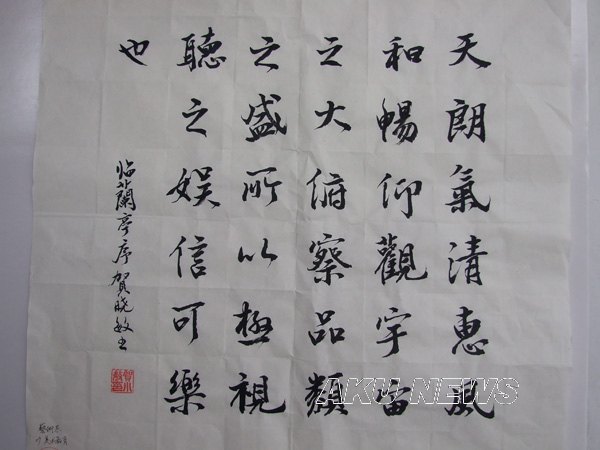 天朗氣清惠風
和暢仰觀宇宙
之大俯察品類
之盛所以極視
聽之娛信可樂
也
临蘭亭序賀晓敏书
藝術系
AKU NEWS